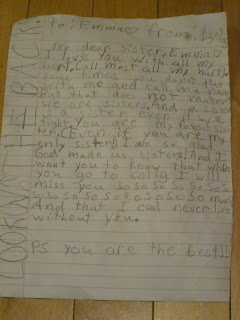 to: Emma from:
my dear sister, Emma
I love you with all my
hart. (all most all my hart).
some times you don't play
with me and call me
but that does not matter
we are sisters. And a sister
is a sister even if we
fight. You are my favorit sis-
ter, (Even if you are my
only sister) I am so glad
God made us sisters. And I
want you to know that when
you go to collig I will
miss you so so so so so so
so so so so so so so so much
And that I cod never live
without you.
PS you are the best!!!
LOOK ON THE BACK